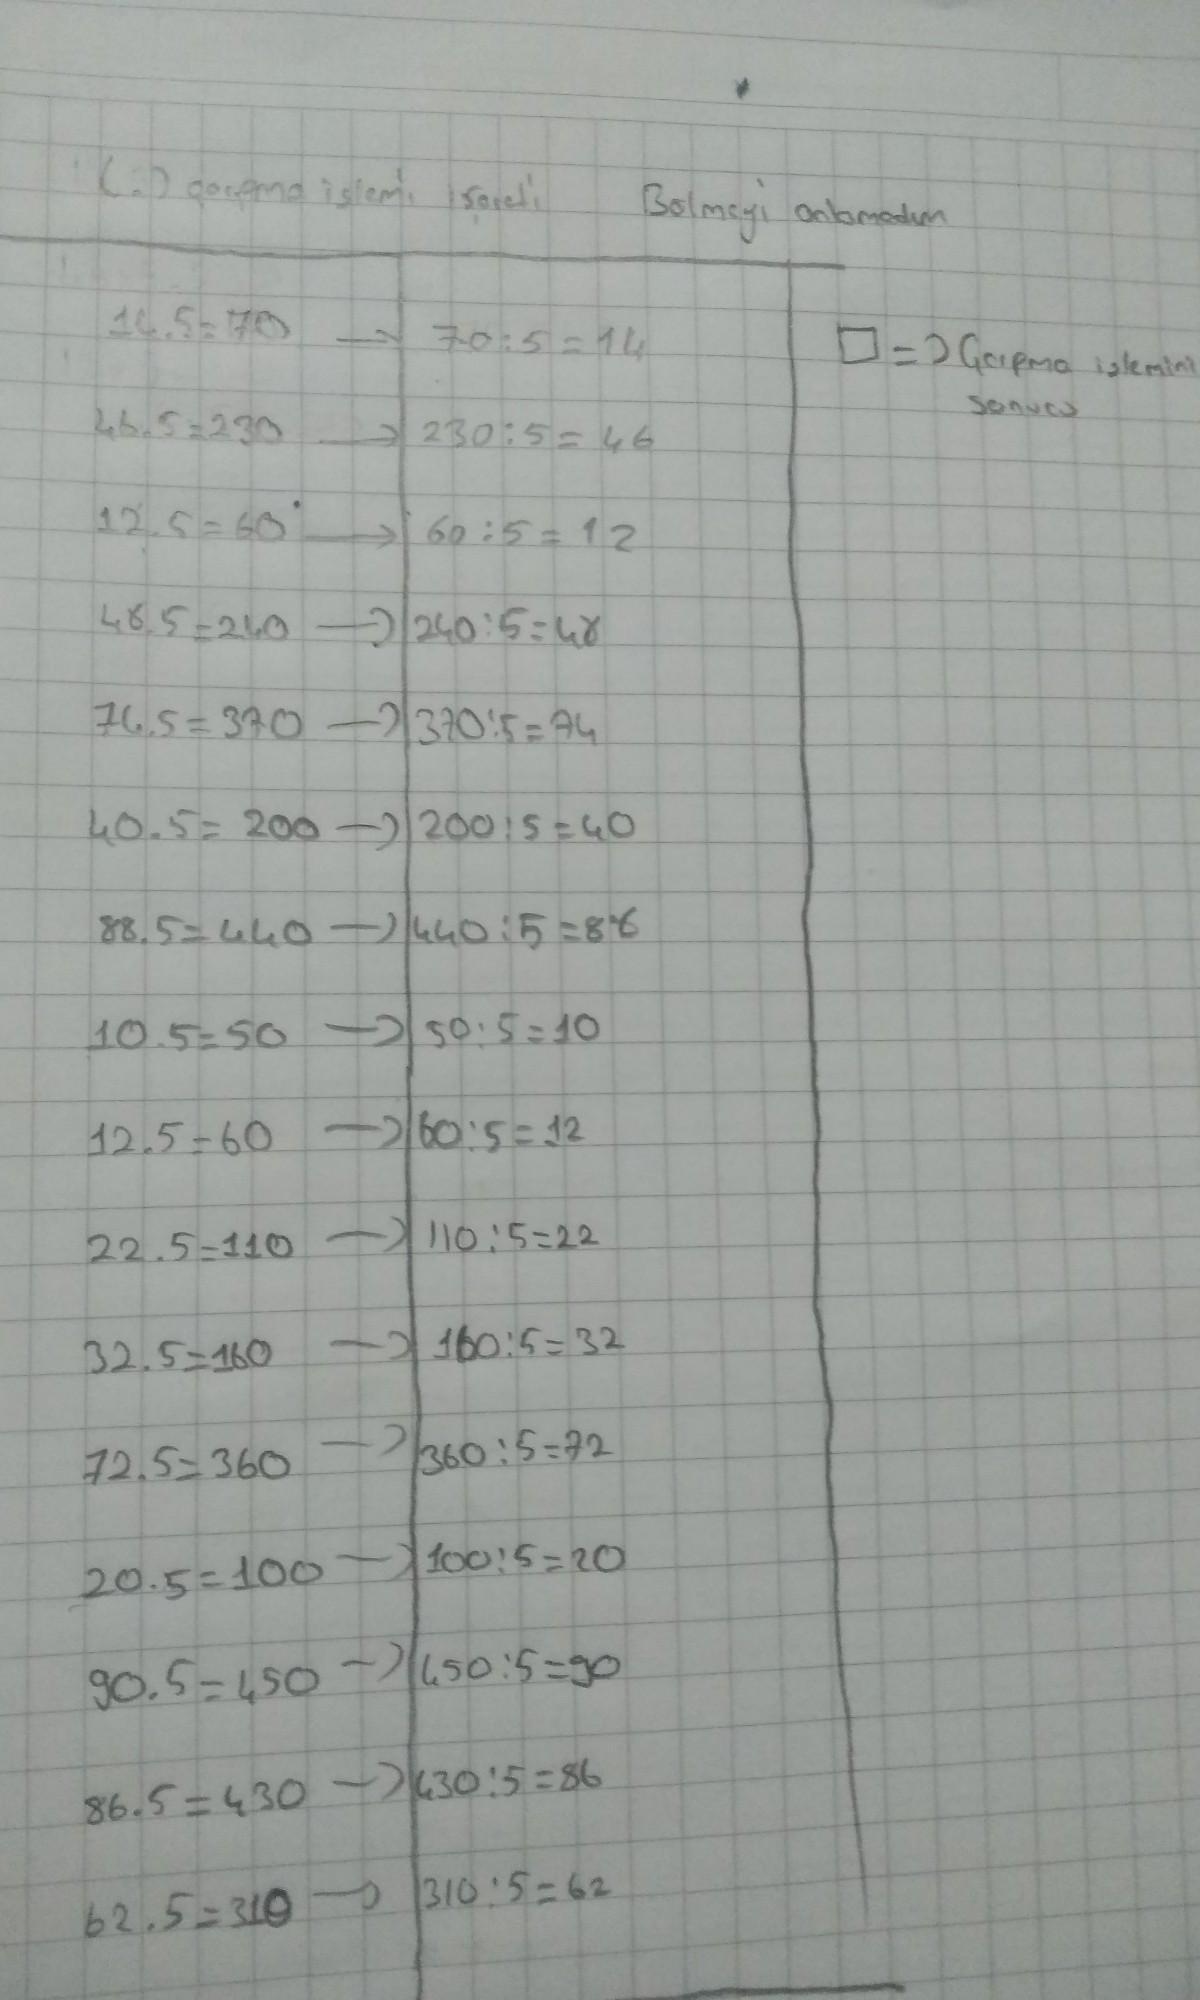 (.) çarpma işlemi işareti Bölmeyi anlamadım
14.5=70 → 70:5=14
46.5=230 → 230:5=46
12.5=60 → 60:5=12
48.5=240 → 240:5=48
74.5=370 → 370:5=74
40.5=200 → 200:5=40
88.5=440 → 440:5=88
10.5=50 → 50:5=10
12.5=60 → 60:5=12
22.5=110 → 110:5=22
32.5=160 → 160:5=32
72.5=360 → 360:5=72
20.5=100 → 100:5=20
90.5=450 → 450:5=90
86.5=430 → 430:5=86
62.5=310 → 310:5=62
□=> Çarpma işlemini
sonucu